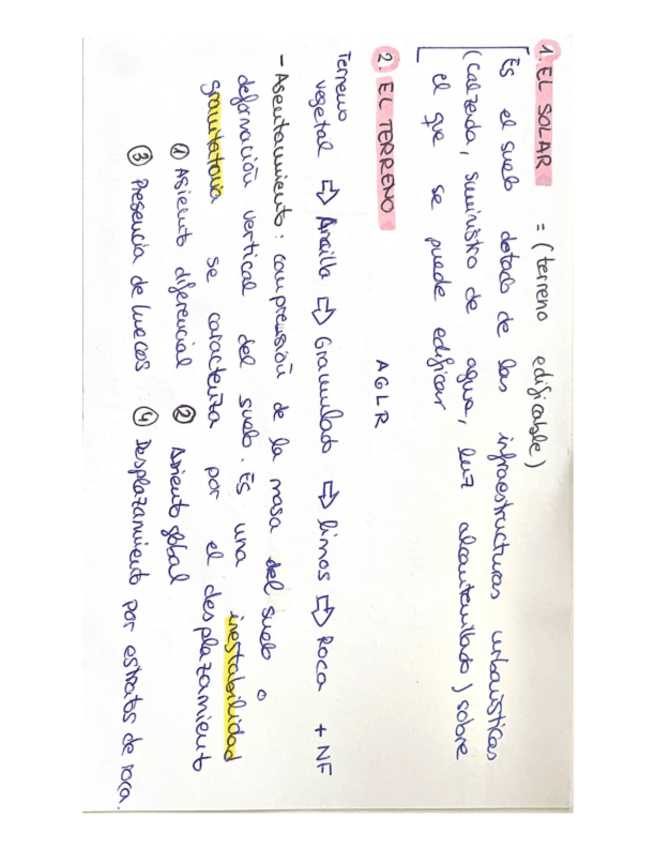 1. EL SOLAR = (terreno edificable)
Es el suelo dotado de las infraestructuras urbanísticas
(calzada, suministro de agua, luz alcantarillado) sobre
el que se puede edificar
2. EL TERRENO AGLR
Terreno
vegetal ⇨ Arcilla ⇨ Granulado ⇨ limos ⇨ Roca + NF
- Asentamiento: compresión de la masa del suelo o
deformación vertical del suelo. Es una inestabilidad
gravitatoria se caracteriza por el desplazamiento
① Asiento diferencial ② Asiento global
③ Presencia de huecos ④ Desplazamiento por estratos de roca.